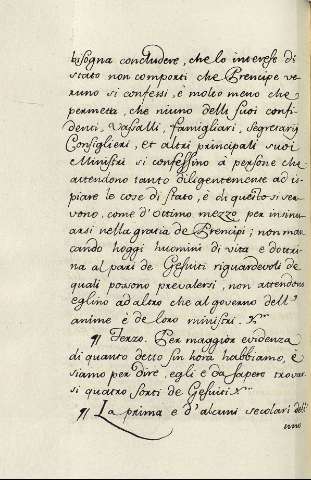 bisogna concludere, che lo interese di
stato non comporti che Prencipe ve
runo si confessi, e molto meno che
permetta, che niuno delli suoi confi
denti, Vassalli, famigliari, segretarij
Consiglieri, et altri principali suoi
Ministri si confessino à persone che
attendono tanto diligentemente ad is
piare le cose di stato, e di questo si ser
vono, come d'ottimo mezzo per insinu
arsi nella gratia de Prencipi; non man
cando hoggi huomini di vita e dottri
na al pari de Gesuiti riguardevoli de
quali possono prevalersi, non attendono
eglino ad altro che al governo dell'
anime e de loro ministri.
¶ Terzo. Per maggior evidenza
di quanto detto sin hora habbiamo, e
siamo per dire, egli è da sapere trovar
si quatro sorti de Gesuiti
¶ La prima e d'alcuni secolari dell'
uno